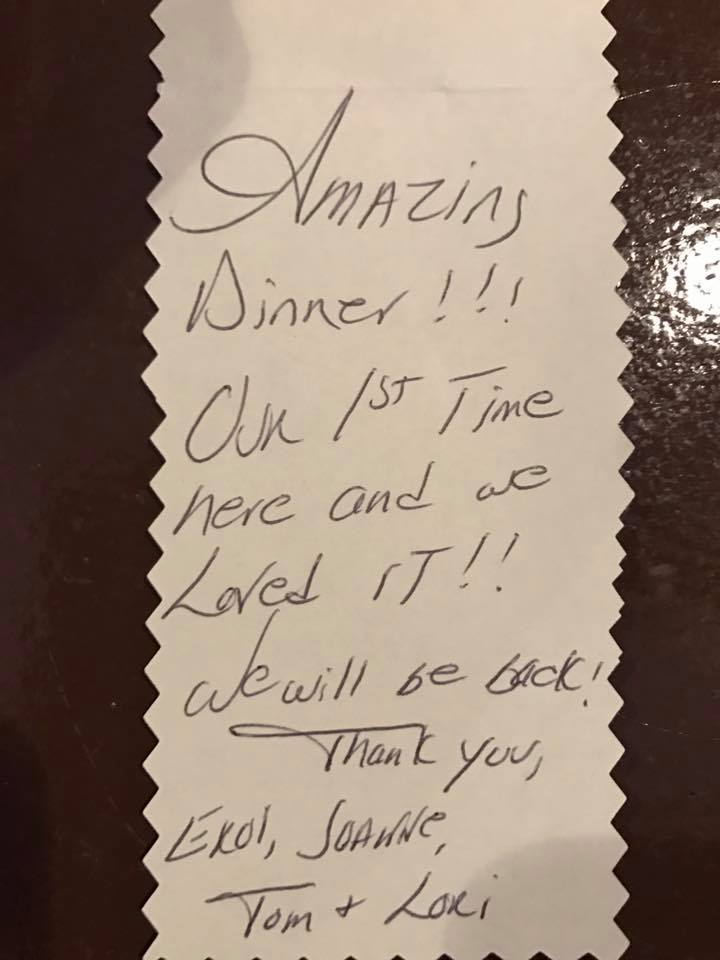 Amazing
Dinner!!!
Our 1st Time
here and we
Loved iT!!
we will be back!
Thank you,
Joanne,
Tom + Lori